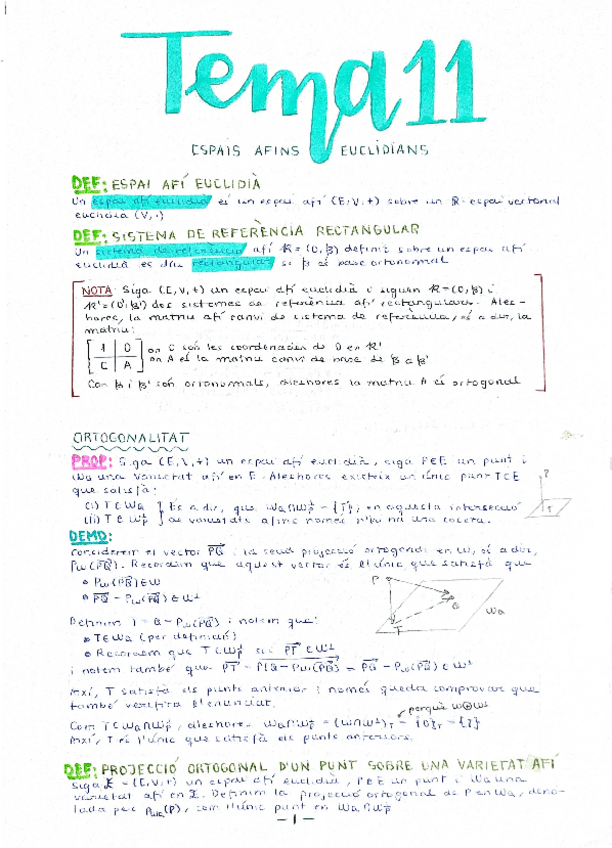 Tema 11
ESPAIS AFINS EUCLIDIANS
DEF: ESPAI AFÍ EUCLIDIÀ
Un espai afí euclidià és un espai afí (E,V,+) sobre un R-espai vectorial
euclidià (V,·)
DEF: SISTEMA DE REFERÈNCIA RECTANGULAR
Un sistema de referència afí R=(O,β) definit sobre un espai afí
euclidià es diu rectangular si β és base ortonormal
NOTA: Siga (E,V,+) un espai afí euclidià i siguen R=(O,β) i
R'=(O',β') dos sistemes de referència afí rectangulars. Ales-
hores, la matriu afí canvi de sistema de referència, és a dir, la
matriu:
1 0
C A
on C són les coordenades de O en R'
on A és la matriu canvi de base de β a β'
Com β i β' són ortonormals, aleshores la matriu A és ortogonal
ORTOGONALITAT
PROP: Siga (E,V,+) un espai afí euclidià, siga P∈E un punt i
Wa una varietat afí en E. Aleshores existeix un únic punt T∈E
que satisfà:
(i) T∈Wa
(ii) T∈W⊥P
És a dir, que Wa∩W⊥P={T}, en aquesta intersecció
de varietats afins només n'hi ha una
DEMO:
Considerem el vector PQ i la seua projecció ortogonal en W, és a dir,
PW(PQ). Recordem que aquest vector és l'únic que satisfà que
• PW(PQ)∈W
• PQ - PW(PQ) ∈ W⊥
P
Q
T
Wa
Definim T = Q - PW(PQ) i notem que:
• T∈Wa (per definició)
• Recordem que T∈W⊥P sii PT∈W⊥
i notem també que PT = P(Q - PW(PQ)) = PQ - PW(PQ) ∈ W⊥
Així, T satisfà els punts anteriors i només queda comprovar que
també verifica l'enunciat.
perquè W⊕W⊥
Com T∈Wa∩W⊥P, aleshores Wa∩W⊥P = (W∩W⊥)T = {0}T = {T}
Així, T és l'únic que satisfà els punts anteriors.
DEF: PROJECCIÓ ORTOGONAL D'UN PUNT SOBRE UNA VARIETAT AFÍ
Siga X = (E,V,+) un espai afí euclidià, P∈E un punt i Wa una
varietat afí en X. Definim la projecció ortogonal de P en Wa, deno-
tada per PWa(P), com l'únic punt en Wa∩W⊥P
- 1 -